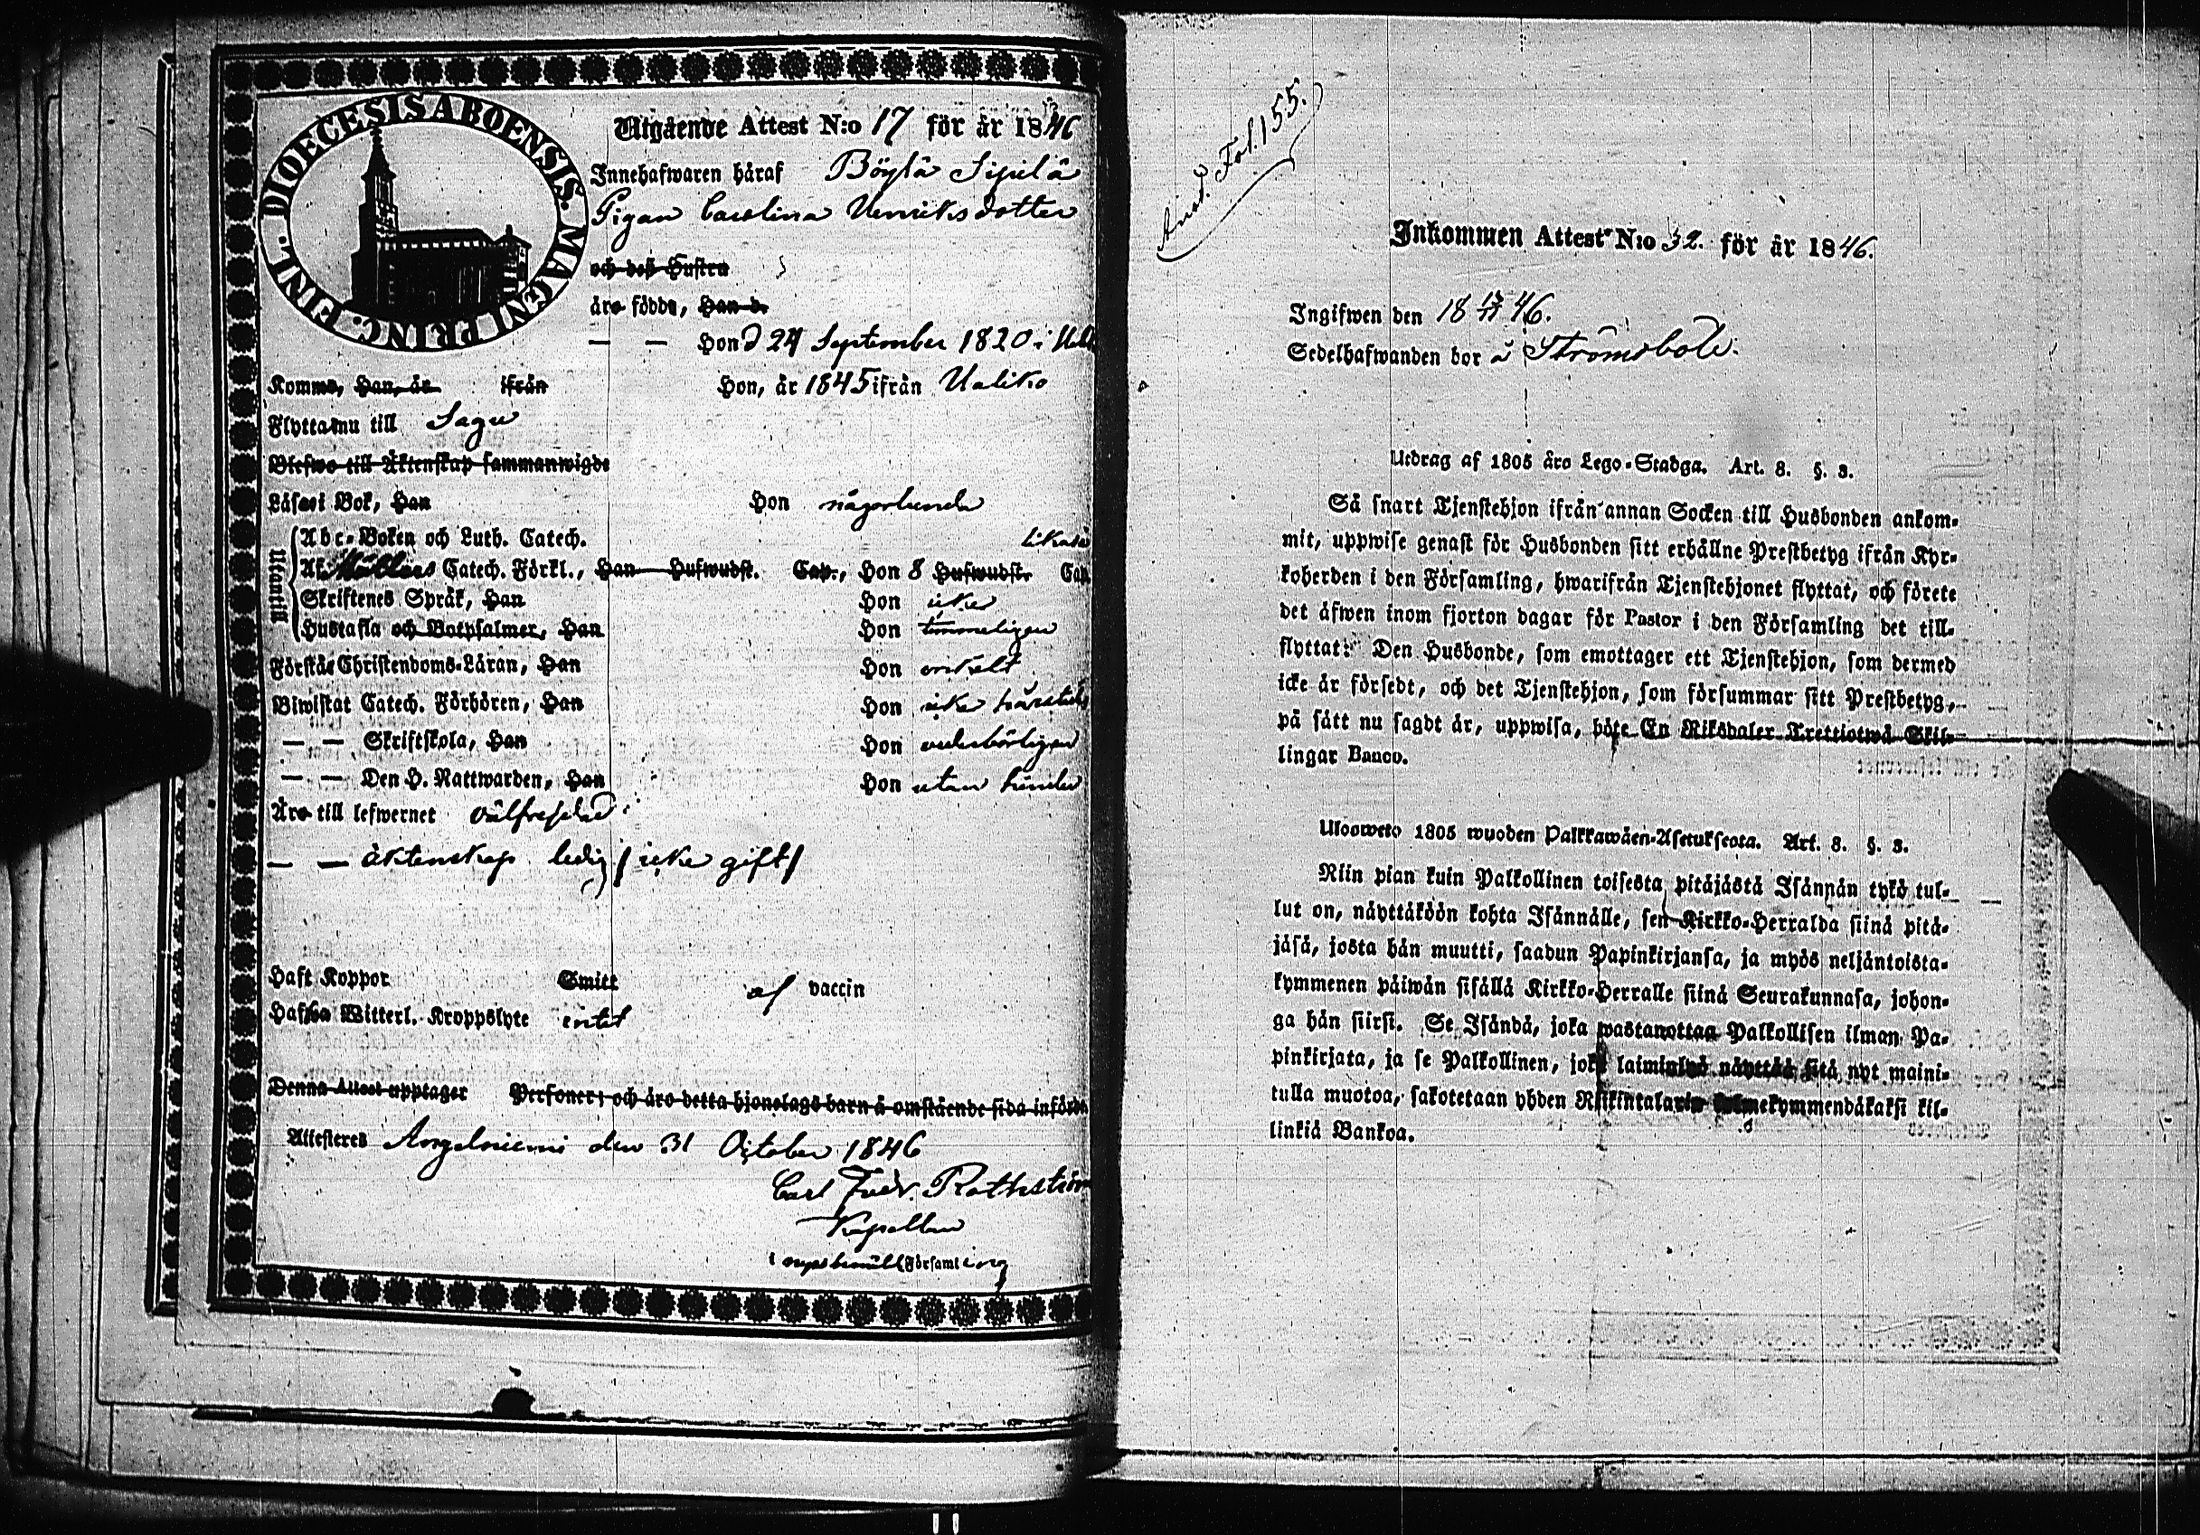 DIOECESIS ABOENSIS. MAGNI PRINC. FINL.
Utgående Attest N:o 17 för år 1846
Innehafwaren häraf Böylä Sipilä
Pigan Carolina Henriksdotter
och deß Hustru
äro födde, Han d.
— — Hon d 24 September 1820 i
Komne, Han, år ifrån Hon, år 1845 ifrån Uskela
Flytta nu till Sagu
Blefwo till Äktenskap sammanwigde
Läsa i Bok, Han Hon någorlunda
Utantill
Abc-Boken och Luth. Catech. likaså
Af Möllers Catech. Förkl., Han Hufwudst. Cap., Hon 8 Hufwudst. Cap.
Skriftenes Språk, Han Hon icke
Hustafla och Botpsalmer, Han Hon timmeligen
Förstår Christendoms-Läran, Han Hon enkelt
Biwistat Catech. Förhören, Han Hon icke
— — Skriftskola, Han Hon vederbörligen
— — Den H. Nattwarden, Han Hon utan hinder
Äro till lefwernet välfrejdad
— — äktenskap ledig / icke gift /
Haft Koppor Smitt af vaccin
Hafwa Witterl. Kroppslyte intet
Denna Attest upptager Personer; och äro detta hjonelags barn å omstående sida införda
Attesteres Angelniemi den 31 October 1846
Carl Fredr. Rothström
Kapellan
i Församling
Ansd. Fol. 155.
Inkommen Attest N:o 32. för år 1846.
Ingifwen den 18 46.
Sedelhafwanden bor å Strömsbole.
Utdrag af 1805 års Lego-Stadga. Art. 8. §. 3.
Så snart Tjenstehjon ifrån annan Socken till Husbonden ankom-
mit, uppwise genast för Husbonden sitt erhållne Prestbetyg ifrån Kyr-
koherden i den Församling, hwarifrån Tjenstehjonet flyttat, och förete
det äfwen inom fjorton dagar för Pastor i den Församling det till-
flyttat: Den Husbonde, som emottager ett Tjenstehjon, som dermed
icke är försedt, och det Tjenstehjon, som försummar sitt Prestbetyg,
på sätt nu sagdt är, uppwisa, böte En Riksdaler Trettiotwå Skil-
lingar Banco.
Ulosweto 1805 wuoden Palkkawäen-Asetuksesta. Art. 8. §. 3.
Niin pian kuin Palkollinen toisesta pitäjästä Isännän tykö tul-
lut on, näyttäköön kohta Isännälle, sen Kirkko-Herralda siinä pitä-
jäsä, josta hän muutti, saadun Papinkirjansa, ja myös neljäntoista-
kymmenen päiwän sisällä Kirkko-Herralle siinä Seurakunnasa, johon-
ga hän siirsi. Se Isändä, joka wastanottaa Palkollisen ilman Pa-
pinkirjata, ja se Palkollinen, joka laiminlyö näyttää sitä nyt maini-
tulla muotoa, sakotetaan yhden Riikintalarin kolmekymmendäkaksi kil-
linkiä Bankoa.